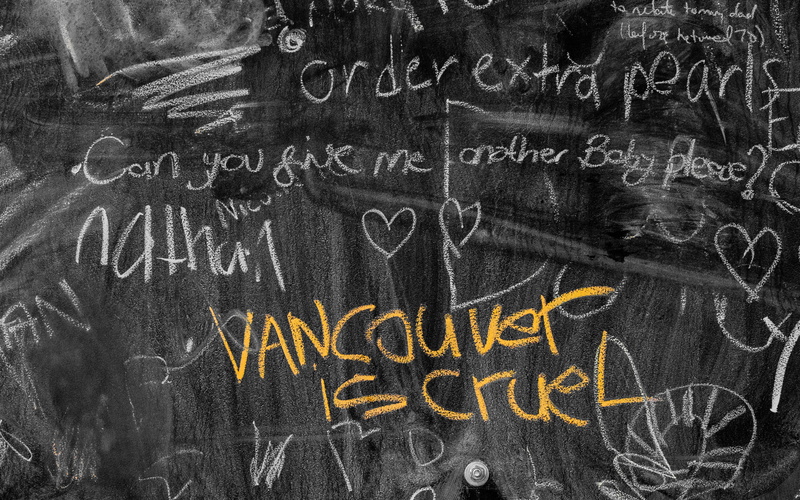 to relate to my dad
(before he turned 70)
order extra pearls
Can you give me another Baby please?
Nico
nathan
VANCOUver
is cruel